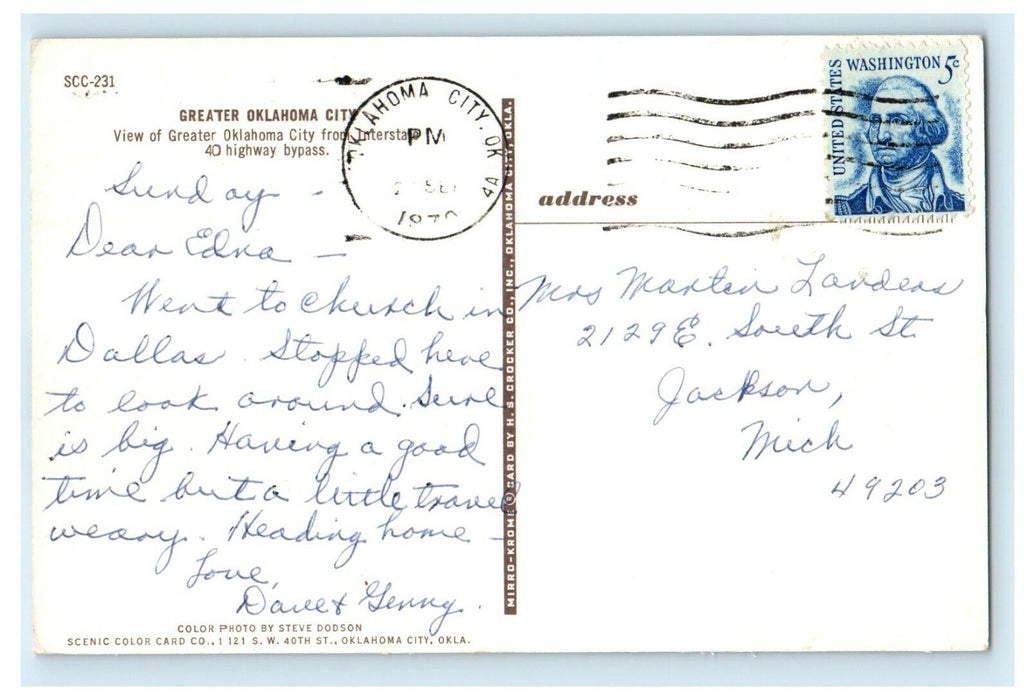 SCC-231
GREATER OKLAHOMA CITY
View of Greater Oklahoma City from Interstate
40 highway bypass.
OKLAHOMA CITY, OK
4A
PM
SEP
UNITED STATES
WASHINGTON 5c
Sunday -
Dear Edna -
Went to church in
Dallas. Stopped here
to look around. Sure
is big. Having a good
time but a little travel
weary. Heading home -
Love,
Dave & Genny.
COLOR PHOTO BY STEVE DODSON
SCENIC COLOR CARD CO., 1121 S. W. 40TH ST., OKLAHOMA CITY, OKLA.
MIRRO-KROME® CARD BY H. S. CROCKER CO., INC., OKLAHOMA CITY, OKLA.
address
Mrs Martin Landers
2129 E. South St.
Jackson,
Mich
49203